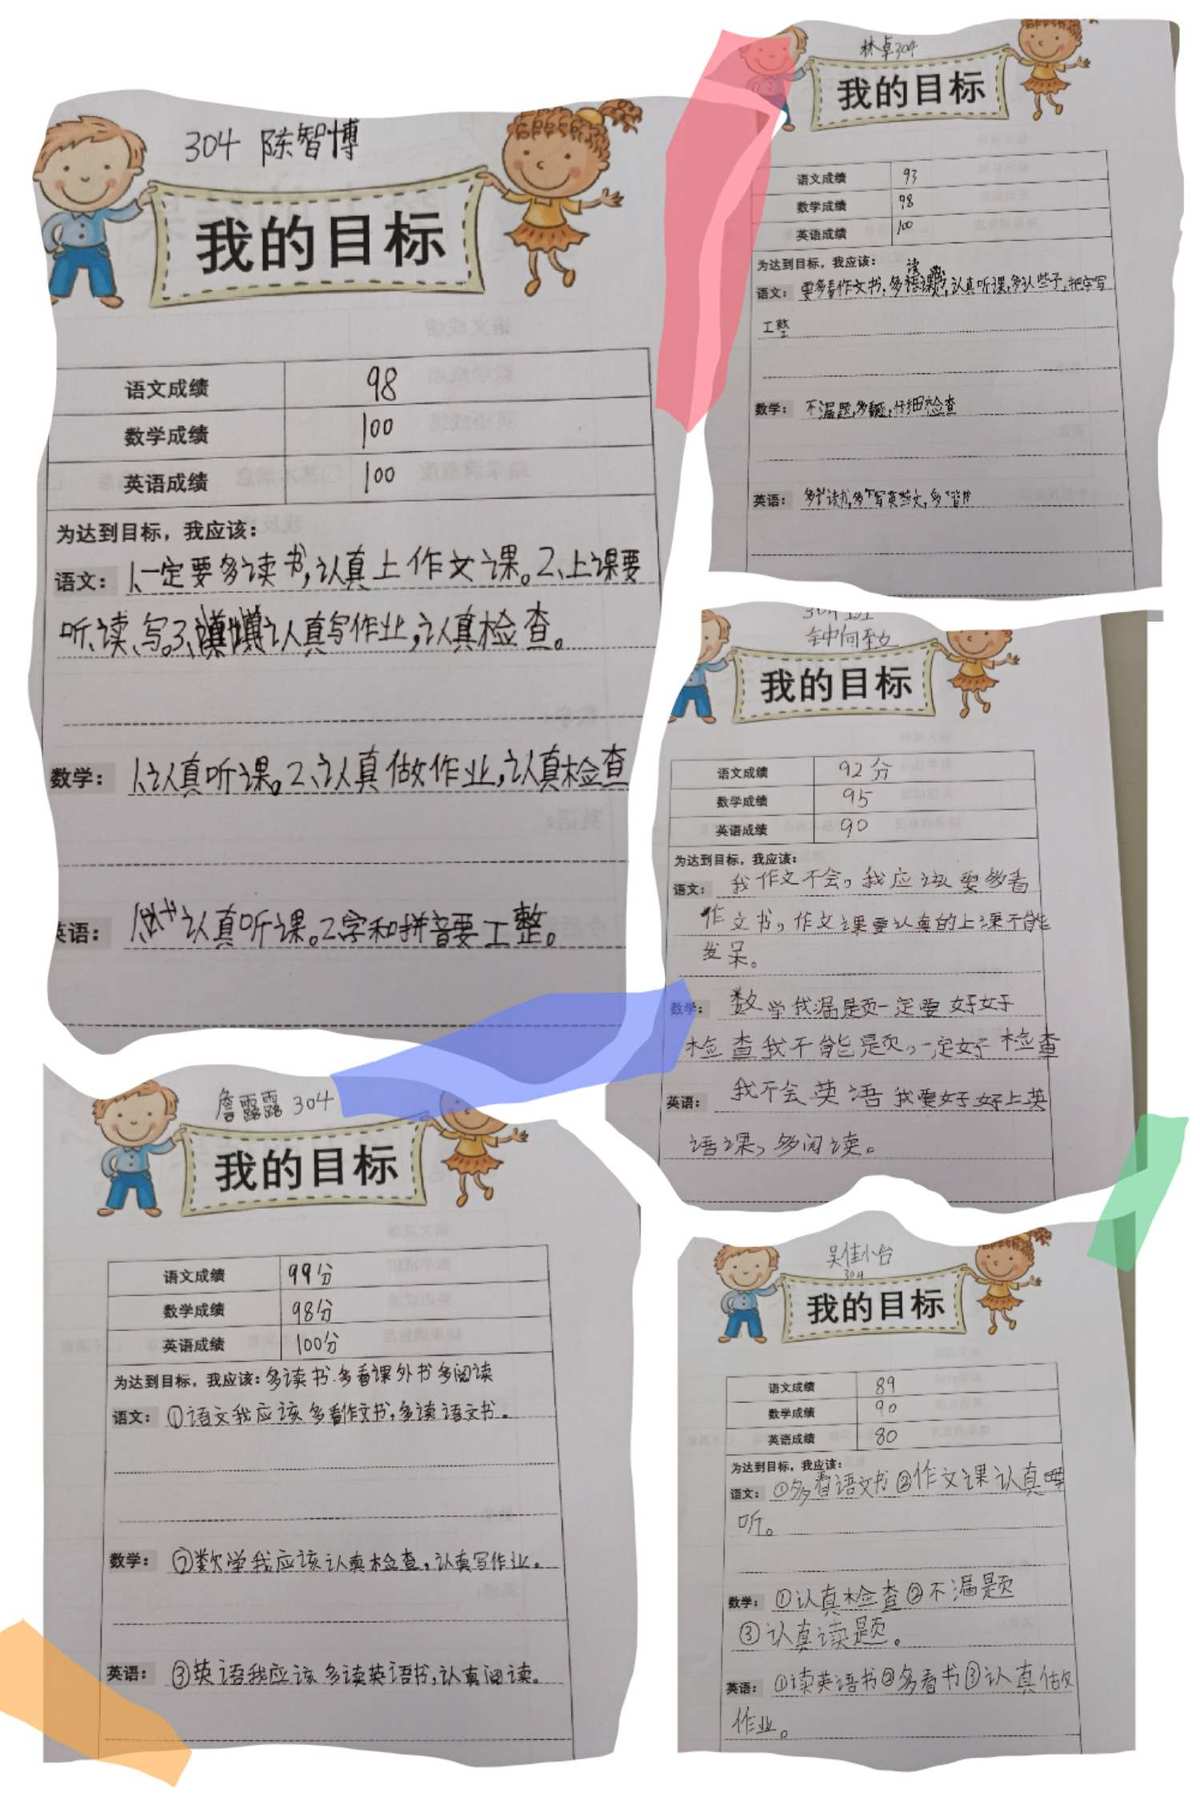 304 陈智博
我的目标
语文成绩 98
数学成绩 100
英语成绩 100
为达到目标，我应该：
语文： 1、一定要多读书,认真上作文课。2、上课要
听、读、写。3、认真写作业,认真检查。
数学： 1、认真听课。2、认真做作业,认真检查
英语： 认真听课。2字和拼音要工整。
林卓304
我的目标
语文成绩 93
数学成绩 98
英语成绩 100
为达到目标，我应该：
语文： 要多看作文书,多读课,认真听课,多认些子,把字写
工整
数学： 不漏题,多题,仔细检查
英语： 多读书,多写英些文,多背
304班
我的目标
语文成绩 92分
数学成绩 95
英语成绩 90
为达到目标，我应该：
语文： 我作文不会,我应该要多看
作文书,作文课要认真的上课不能
发呆。
数学： 数学我漏题一定要好好
检查我不能题,一定好检查
英语： 我不会英语我要好好上英
语课,多阅读。
詹露露 304
我的目标
语文成绩 99分
数学成绩 98分
英语成绩 100分
为达到目标，我应该：多读书.多看课外书多阅读
语文： ①语文我应该多看作文书,多读语文书。
数学： ②数学我应该认真检查,认真写作业。
英语： ③英语我应该多读英语书,认真阅读。
吴佳
304
我的目标
语文成绩 89
数学成绩 90
英语成绩 80
为达到目标，我应该：
语文： ①多看语文书②作文课认真
听。
数学： ①认真检查②不漏题
③认真读题。
英语： ①读英语书②多看书③认真做
作业。